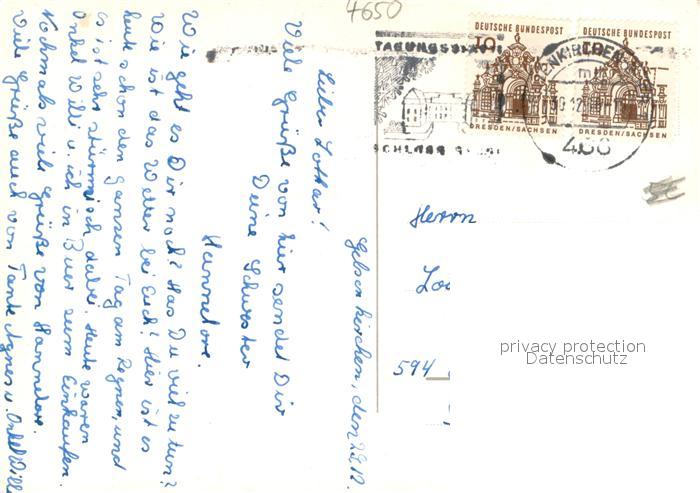 4650
DEUTSCHE BUNDESPOST
10
DRESDEN/SACHSEN
DEUTSCHE BUNDESPOST
DRESDEN/SACHSEN
TAGUNGS
SCHLOSS
466
Gelsenkirchen, den 29.12.
Lieber Lothar!
Viele Grüße von hier sendet Dir
Deine Schwester
Hannelore.
Wie geht es Dir noch? Has Du viel zu tun?
Wie ist das Wetter bei Euch? Hier ist es
heute schon den ganzen Tag am Regnen, und
es ist sehr stürmisch dabei. Heute waren
Onkel Willi u. ich in Buer zum Einkaufen.
Nochmals viele Grüße von Hannelore.
Viele Grüße auch von Tante Agnes u. Onkel Willi
Herrn
594
privacy protection
Datenschutz